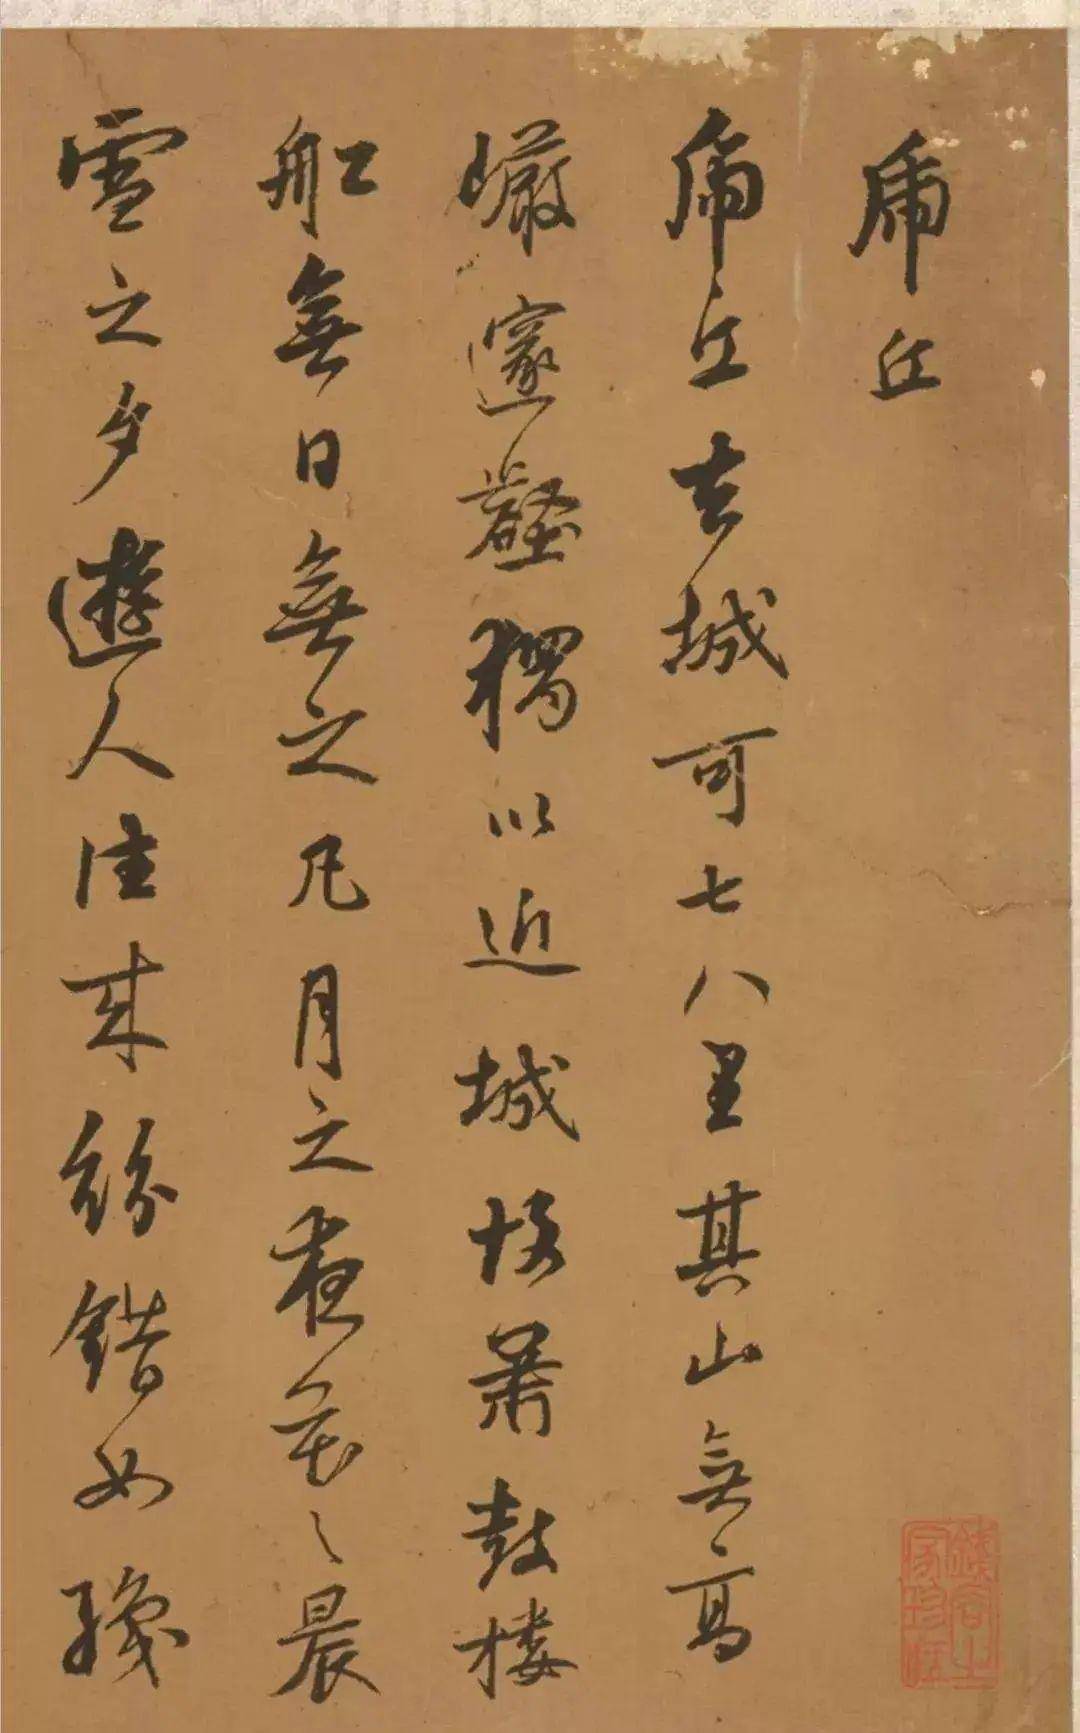 虎丘
虎丘去城可七八里其山無高
巖邃壑獨以近城故簫鼓樓
船無日無之凡月之夜花之晨
雪之夕遊人往來紛錯如
錢容之家珍藏